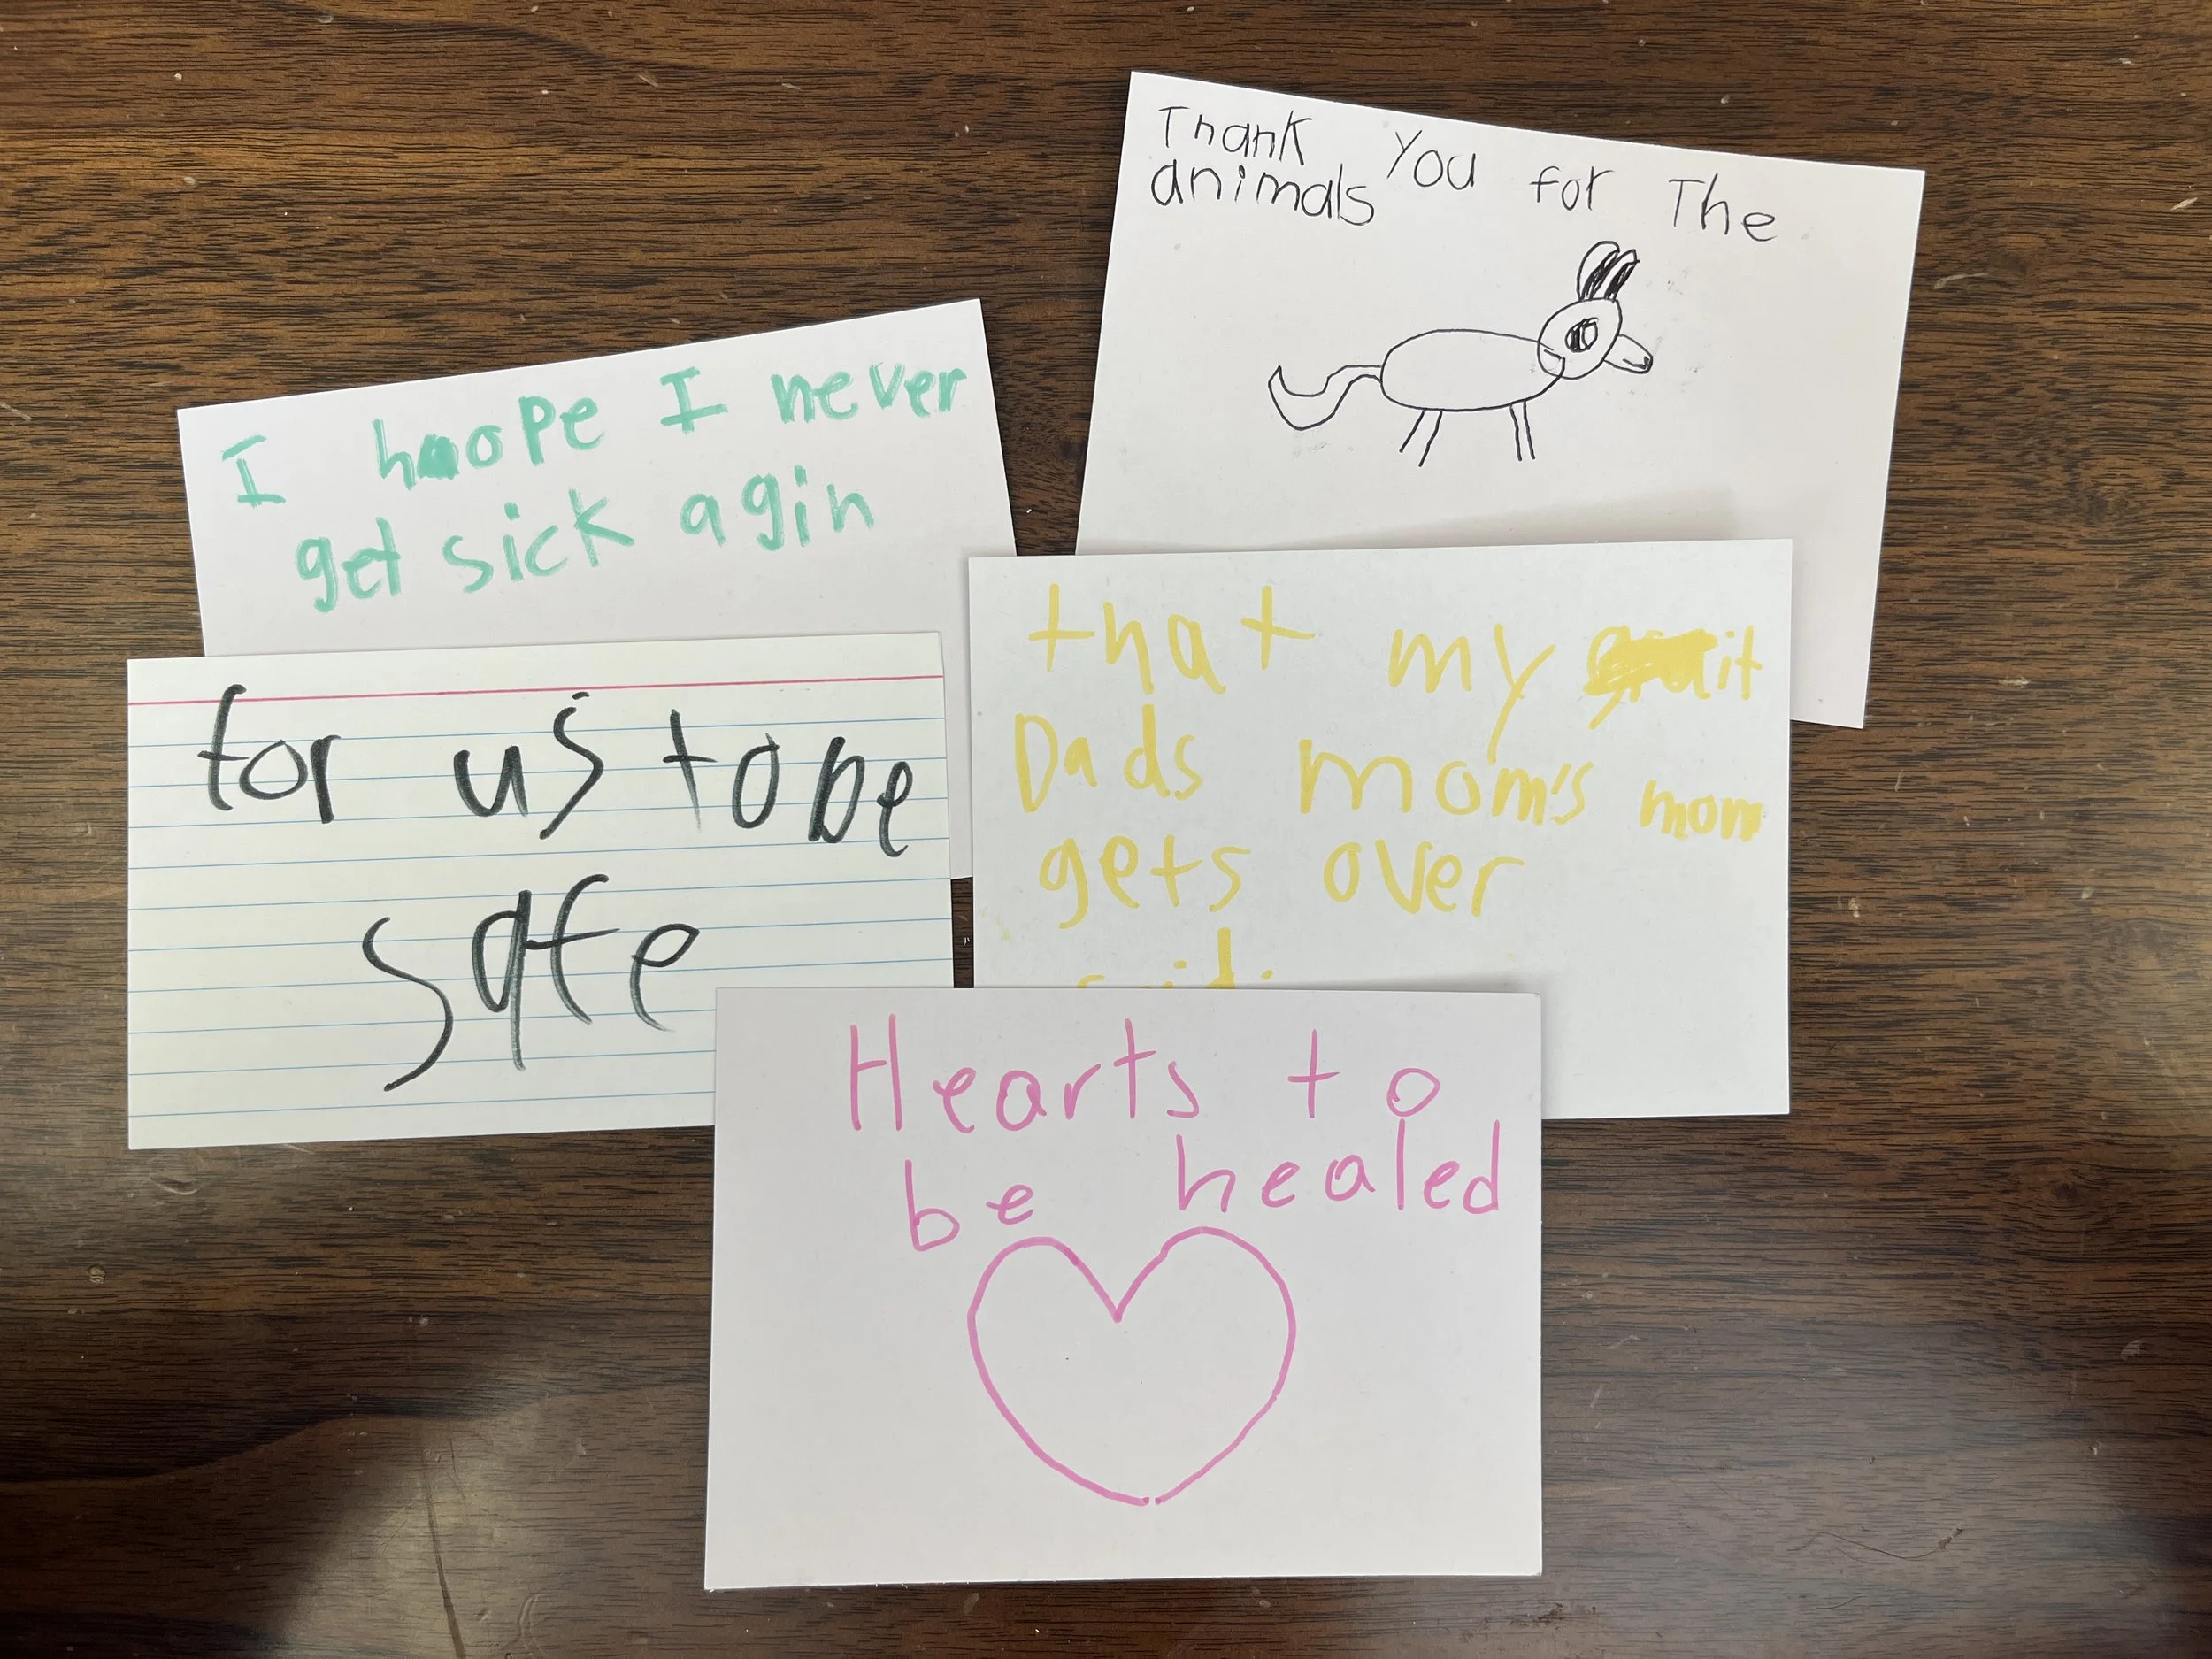 Thank You for The
animals
I hope I never
get sick agin
that my it
Dads mom's mom
gets over
for us to be
safe
Hearts to
be healed